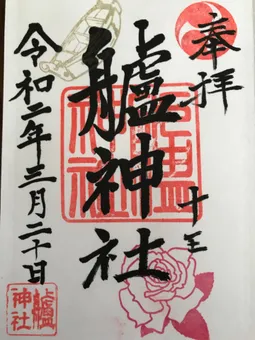 奉拝
十王
艫神社
令和二年三月二十日
艫
神社